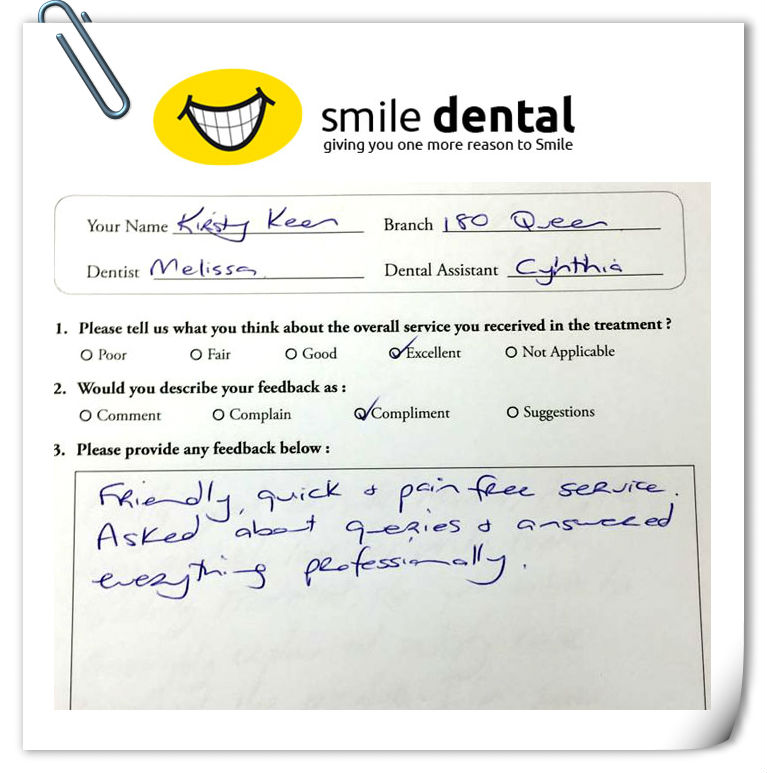 smile dental
giving you one more reason to Smile
Your Name Kirsty Keen Branch 180 Queen
Dentist Melissa Dental Assistant Cynthia
1. Please tell us what you think about the overall service you recerived in the treatment ?
O Poor O Fair O Good O Excellent O Not Applicable
2. Would you describe your feedback as :
O Comment O Complain O Compliment O Suggestions
3. Please provide any feedback below :
Friendly, quick & pain free service.
Asked about queries & answered
everything professionally.